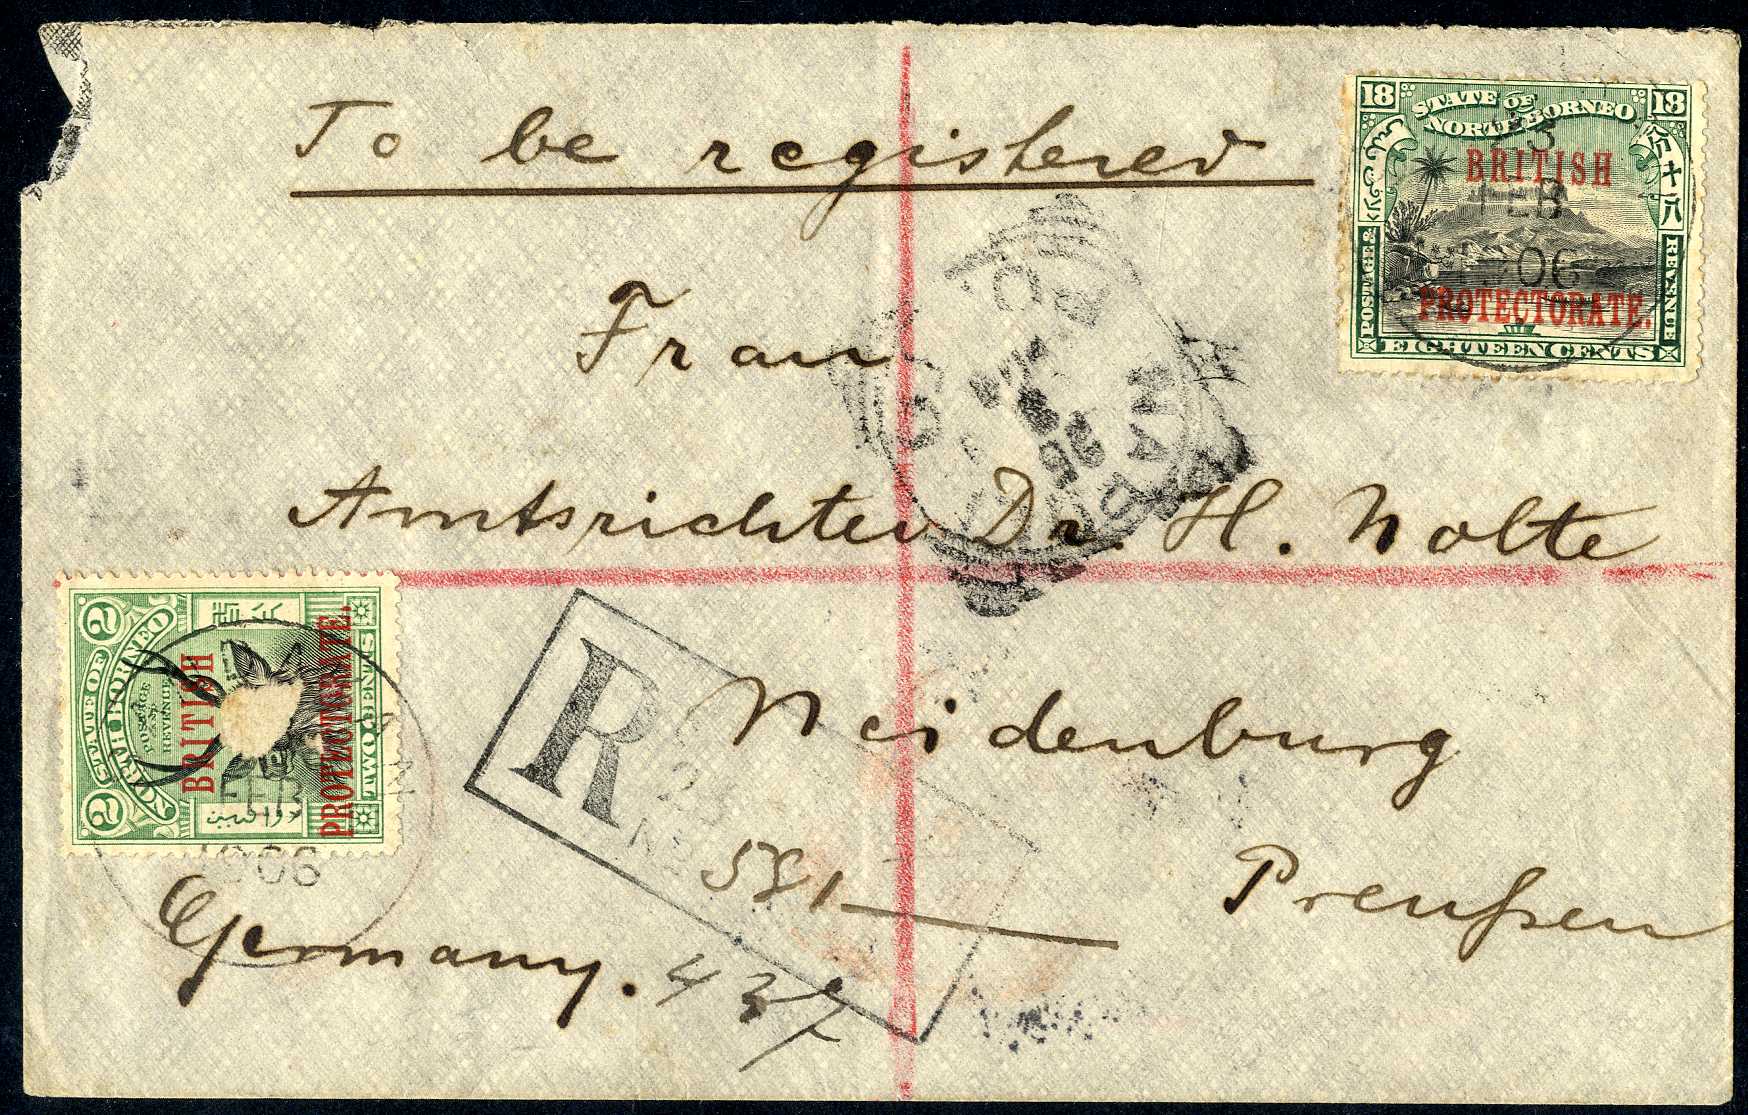 To be registered
18 STATE OF NORTH BORNEO 18
23
BRITISH
FEB
1906
PROTECTORATE.
POSTAGE & REVENUE
EIGHTEEN CENTS
Frau
Amtsrichter Dr. H. Nolte
2 STATE OF NORTH BORNEO 2
POSTAGE & REVENUE
BRITISH
PROTECTORATE.
TWO CENTS
FEB
1906
R
Neidenburg
No 581
Preußen
Germany.
437